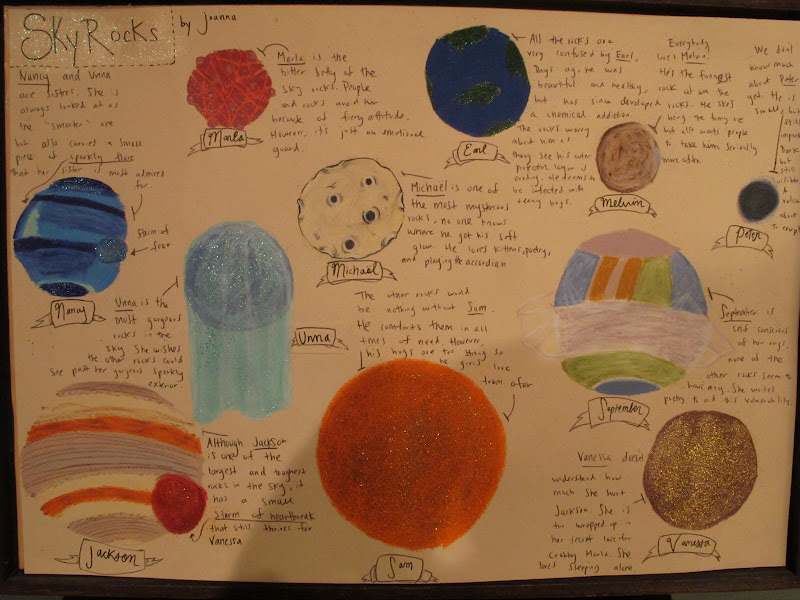 SKY ROCKS
by Joanna
Nancy and Unna
are sisters. She is
always looked at as
the "smarter" one
but also carries a small
piece of sparkly
that her sister is most adored
for.
Storm of
four
Nancy
Marla is the
bitter betty of the
sky rocks. People
and rocks avoid her
because of fiery attitude.
However, it's just an emotional
guard.
Marla
All the rocks are
very confused by Earl.
Days ago, he was
beautiful and healthy,
but has since developed
a chemical addiction.
The rocks worry
about him as
they see his outer
protective layer is
eroding. He seems to
be infected with
teeny bugs.
Earl
Everybody
loves Melvin.
He's the funniest
rock of all the
rocks. He likes
being the funny one
but also wants people
to take him seriously
more often
Melvin
We don't
know much
about Peter
yet. He is
small, but
still
important
Dark
but
still
visible
A
about
to erupt
Peter
Michael is one of
the most mysterious
rocks, no one knows
where he got his soft
glow. He loves kittens, poetry,
and playing the accordian
Michael
Unna is the
most gorgeous
rocks in the
sky. She wishes
the other rocks could
see past her gorgeous sparkly
exterior
Unna
The other rocks would
be nothing without Sam.
He comforts them in all
times of need. However,
his hugs are too strong so
he gives love
from afar
Sam
September is
self conscious
of her rings,
none of the
other rocks seem to
have any. She writes
poetry to aid this vulnerability.
September
Although Jackson
is one of the
largest and toughest
rocks in the sky, it
has a small
storm of heartbreak
that still thrives for
Vanessa
Jackson
Vanessa doesn't
understand how
much she hurt
Jackson. She is
too wrapped up in
her secret love for
Crabby Marla. She
loves sleeping alone.
Vanessa